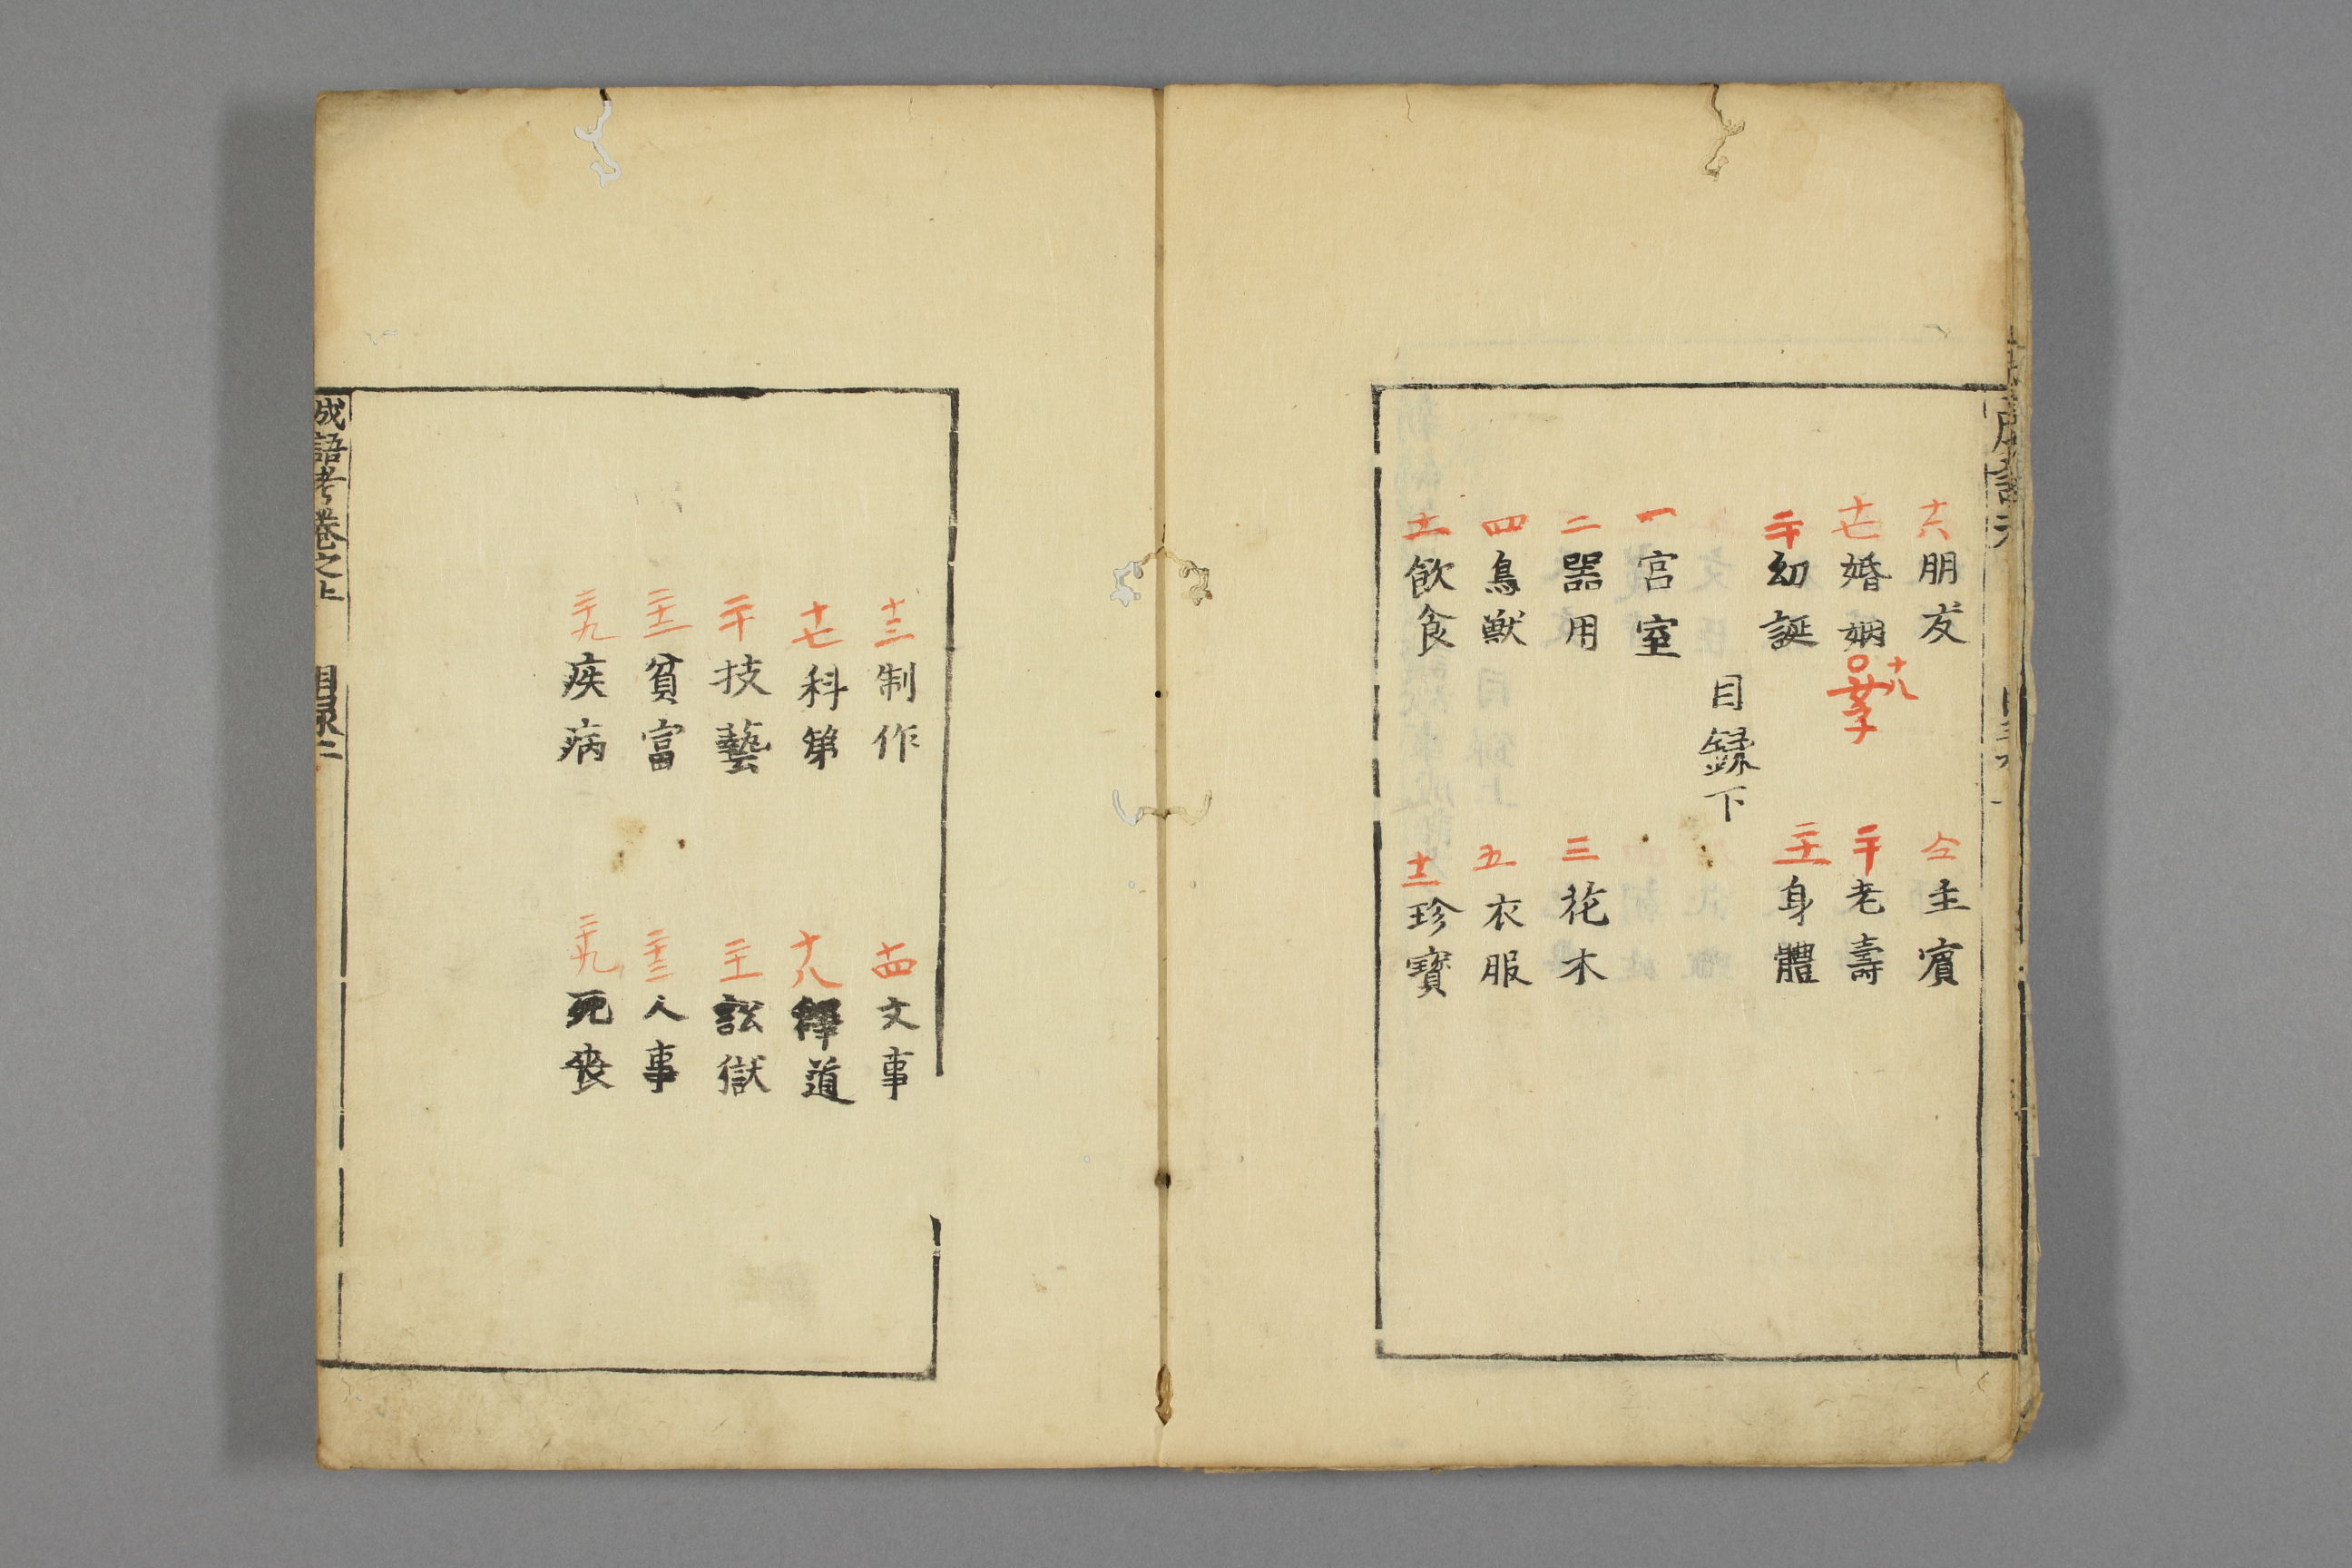 十六 朋友 仝 主賓
十七 婚姻 十八 二十 老壽
二十 幼誕 二十一 身體
目録下
一 宮室
二 器用 三 花木
四 鳥獸 五 衣服
十一 飲食 十二 珍寶
十三 制作 十四 文事
十七 科第 十八 釋道
二十 技藝 二十一 訟獄
二十二 貧富 二十三 人事
二十九 疾病 二十九 死喪
成語考卷之上 目录二